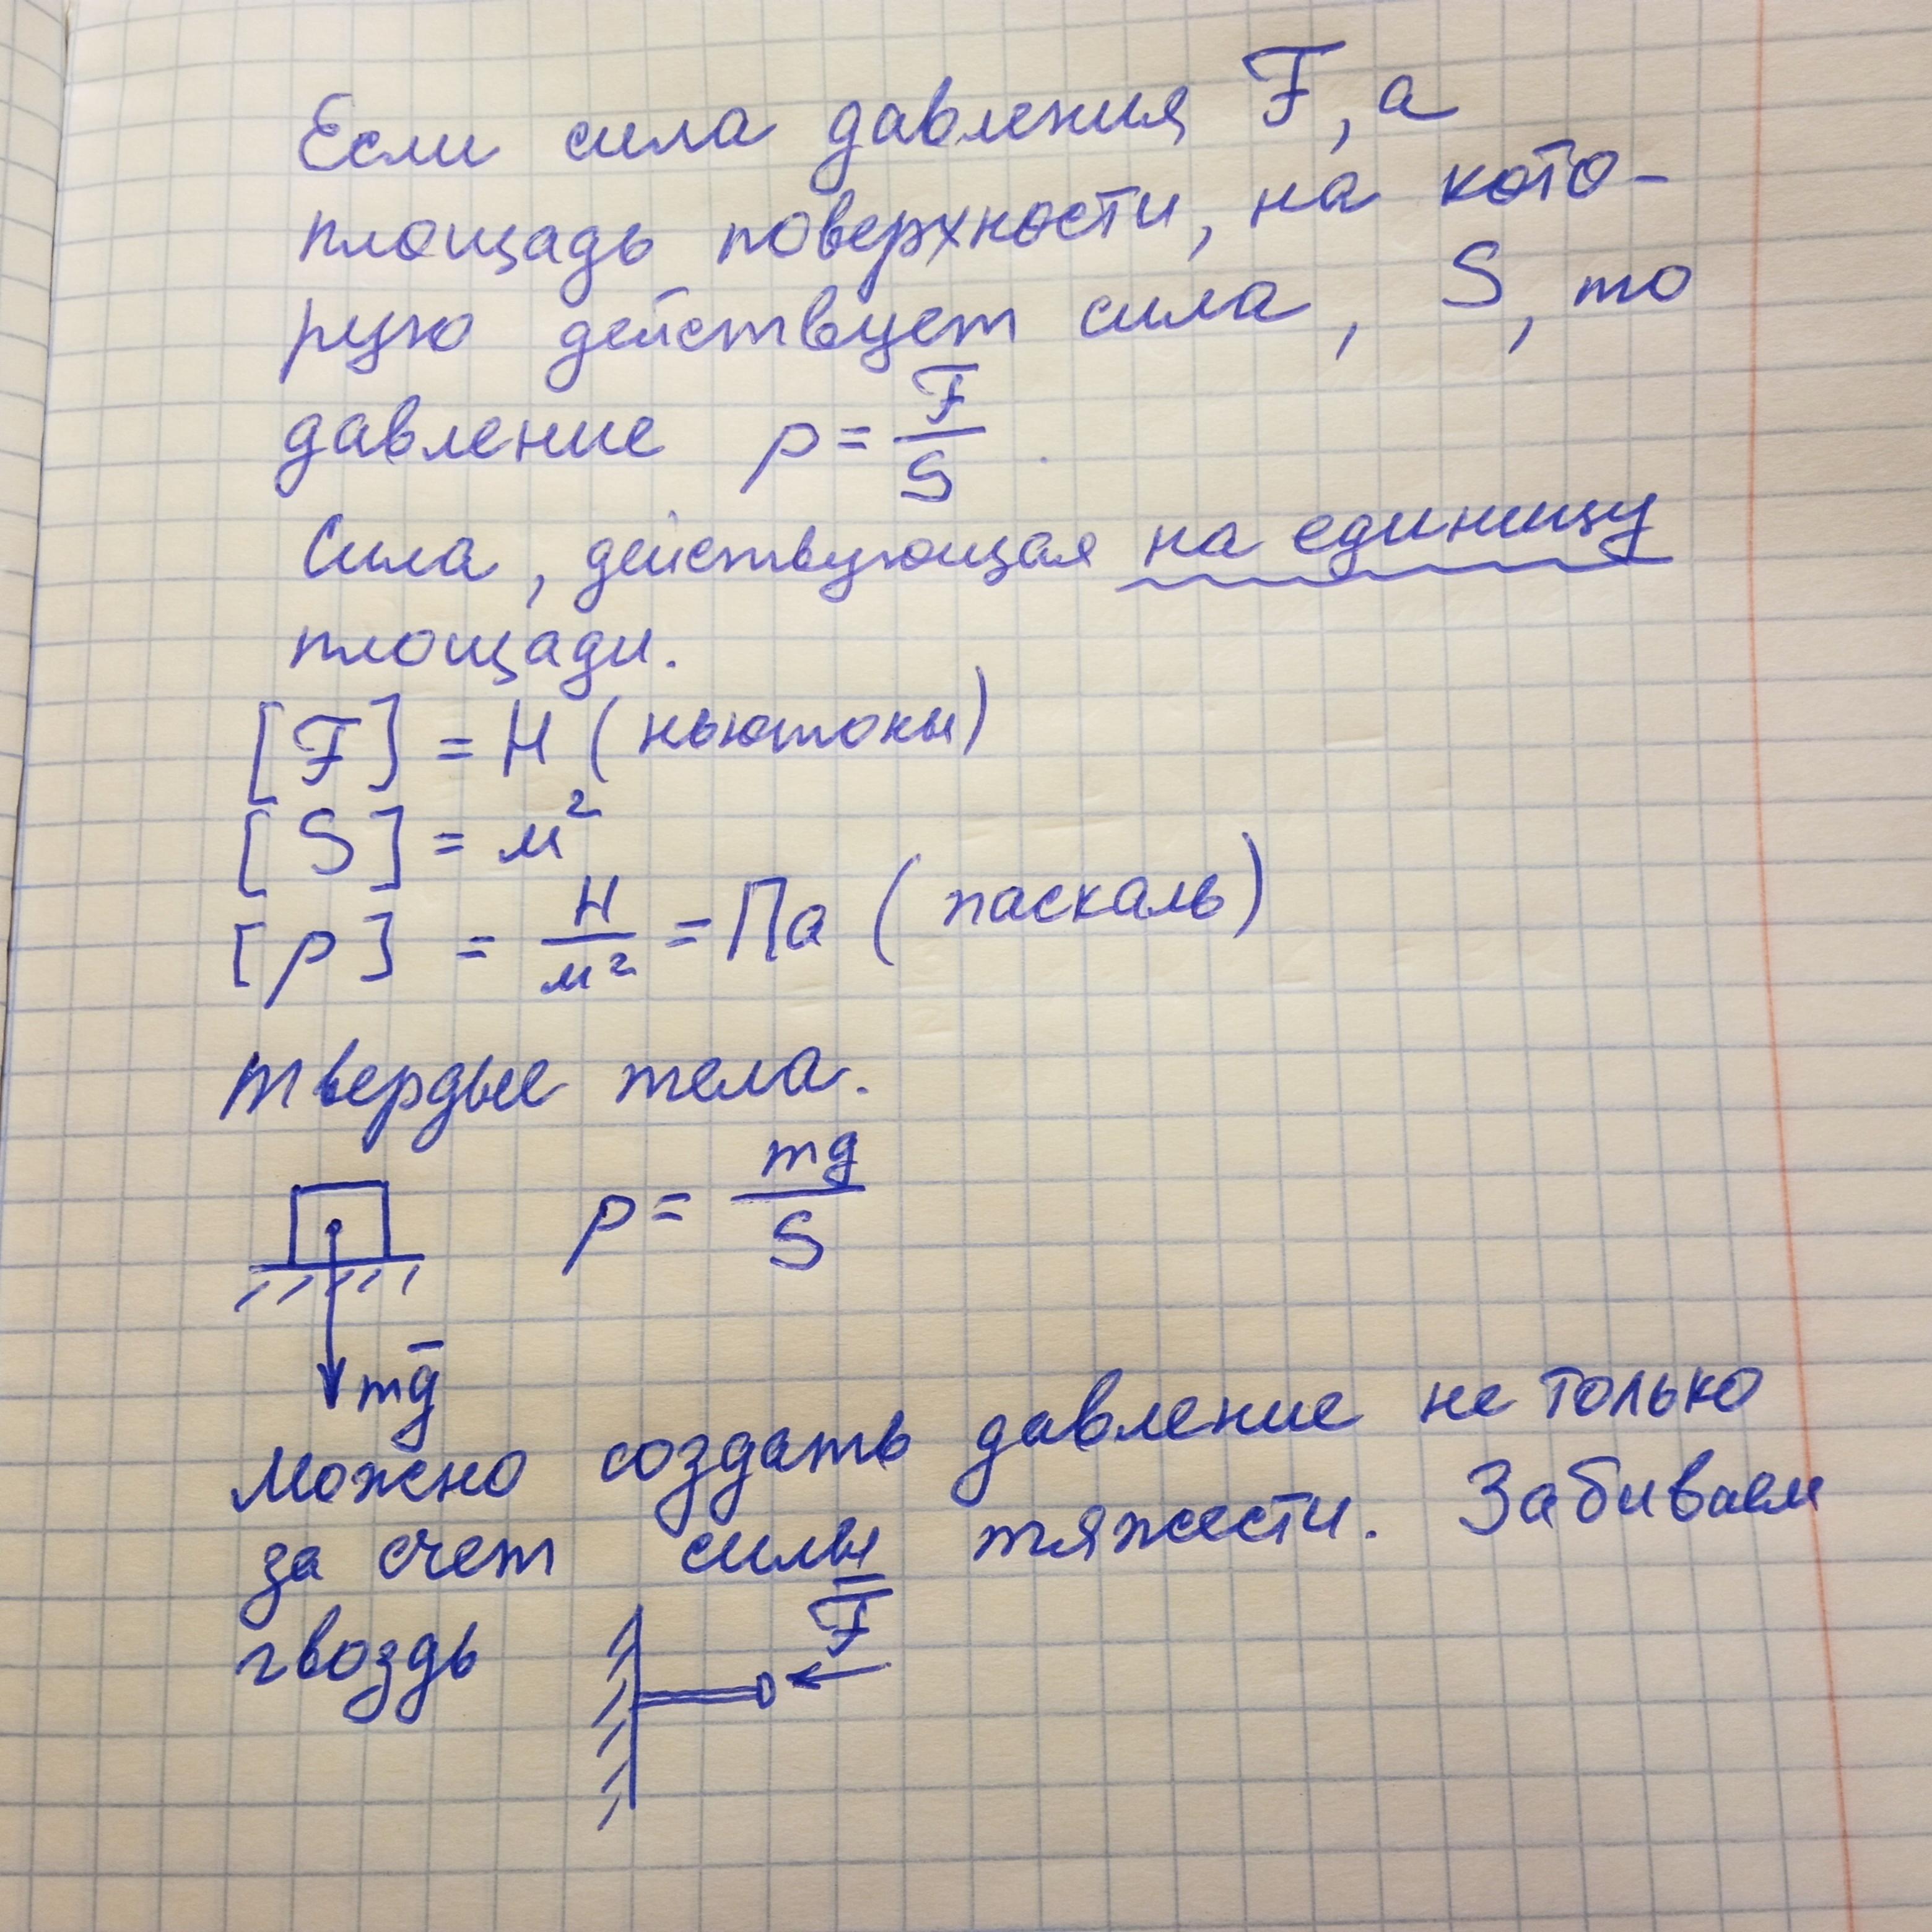 Если сила давления F, а
площадь поверхности, на кото-
рую действует сила, S, то
давление p = F/S.
Сила, действующая на единицу
площади.
[F] = Н (ньютоны)
[S] = м²
[p] = Н/м² = Па (паскаль)
твердые тела.
p = mg/S
mg̅
можно создать давление не только
за счет силы тяжести. Забиваем
F̅
гвоздь